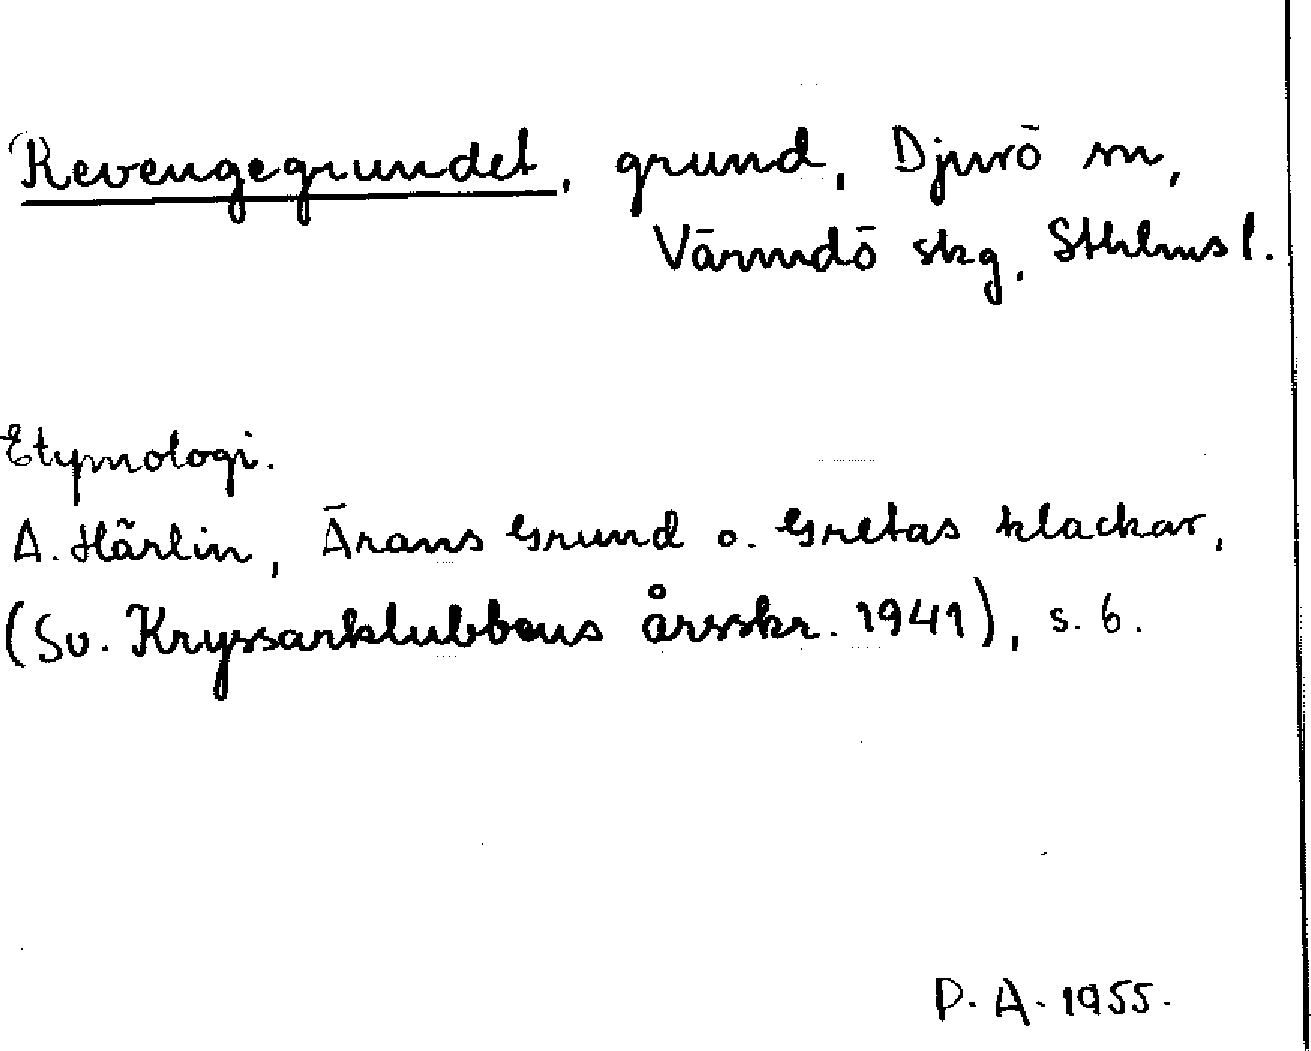 Revengegrundet, grund, Djurö sn,
Värmdö skg, Sthlms l.
Etymologi.
A. Härlin, Ärans Grund o. Gretas klackar,
(Sv. Kryssarklubbens årsskr. 1941), s. 6.
P. A. 1955.